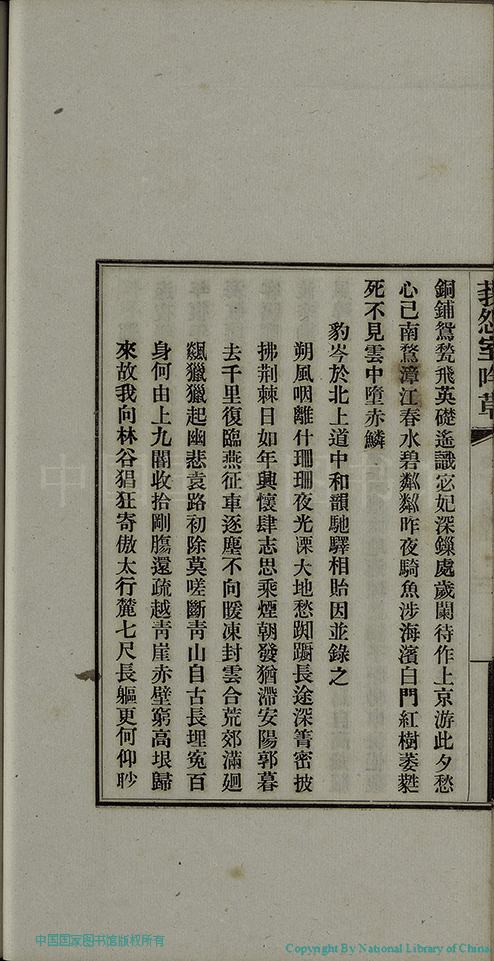 銅鋪鴛甃飛英礎遙識宓妃深鏁處歲闌待作上京游此夕愁
心已南鶩漳江春水碧粼粼昨夜騎魚涉海濱白門紅樹萎蕤
死不見雲中墮赤鱗
豹岑於北上道中和韻馳驛相貽因並錄之
朔風咽離什珊珊夜光凓大地愁踟躕長途深箐密披
拂荆棘日如年興懷肆志思乘煙朝發猶滯安陽郭暮
去千里復臨燕征車逐塵不向暖凍封雲合荒郊滿廻
飆獵獵起幽悲袁路初除莫嗟斷靑山自古長埋冤百
身何由上九閽收拾剛膓還疏越靑崖赤壁窮高垠歸
來故我向林谷猖狂寄傲太行麓七尺長軀更何仰眇
怨室吟草
中国国家图书馆版权所有
Copyright By National Library of China